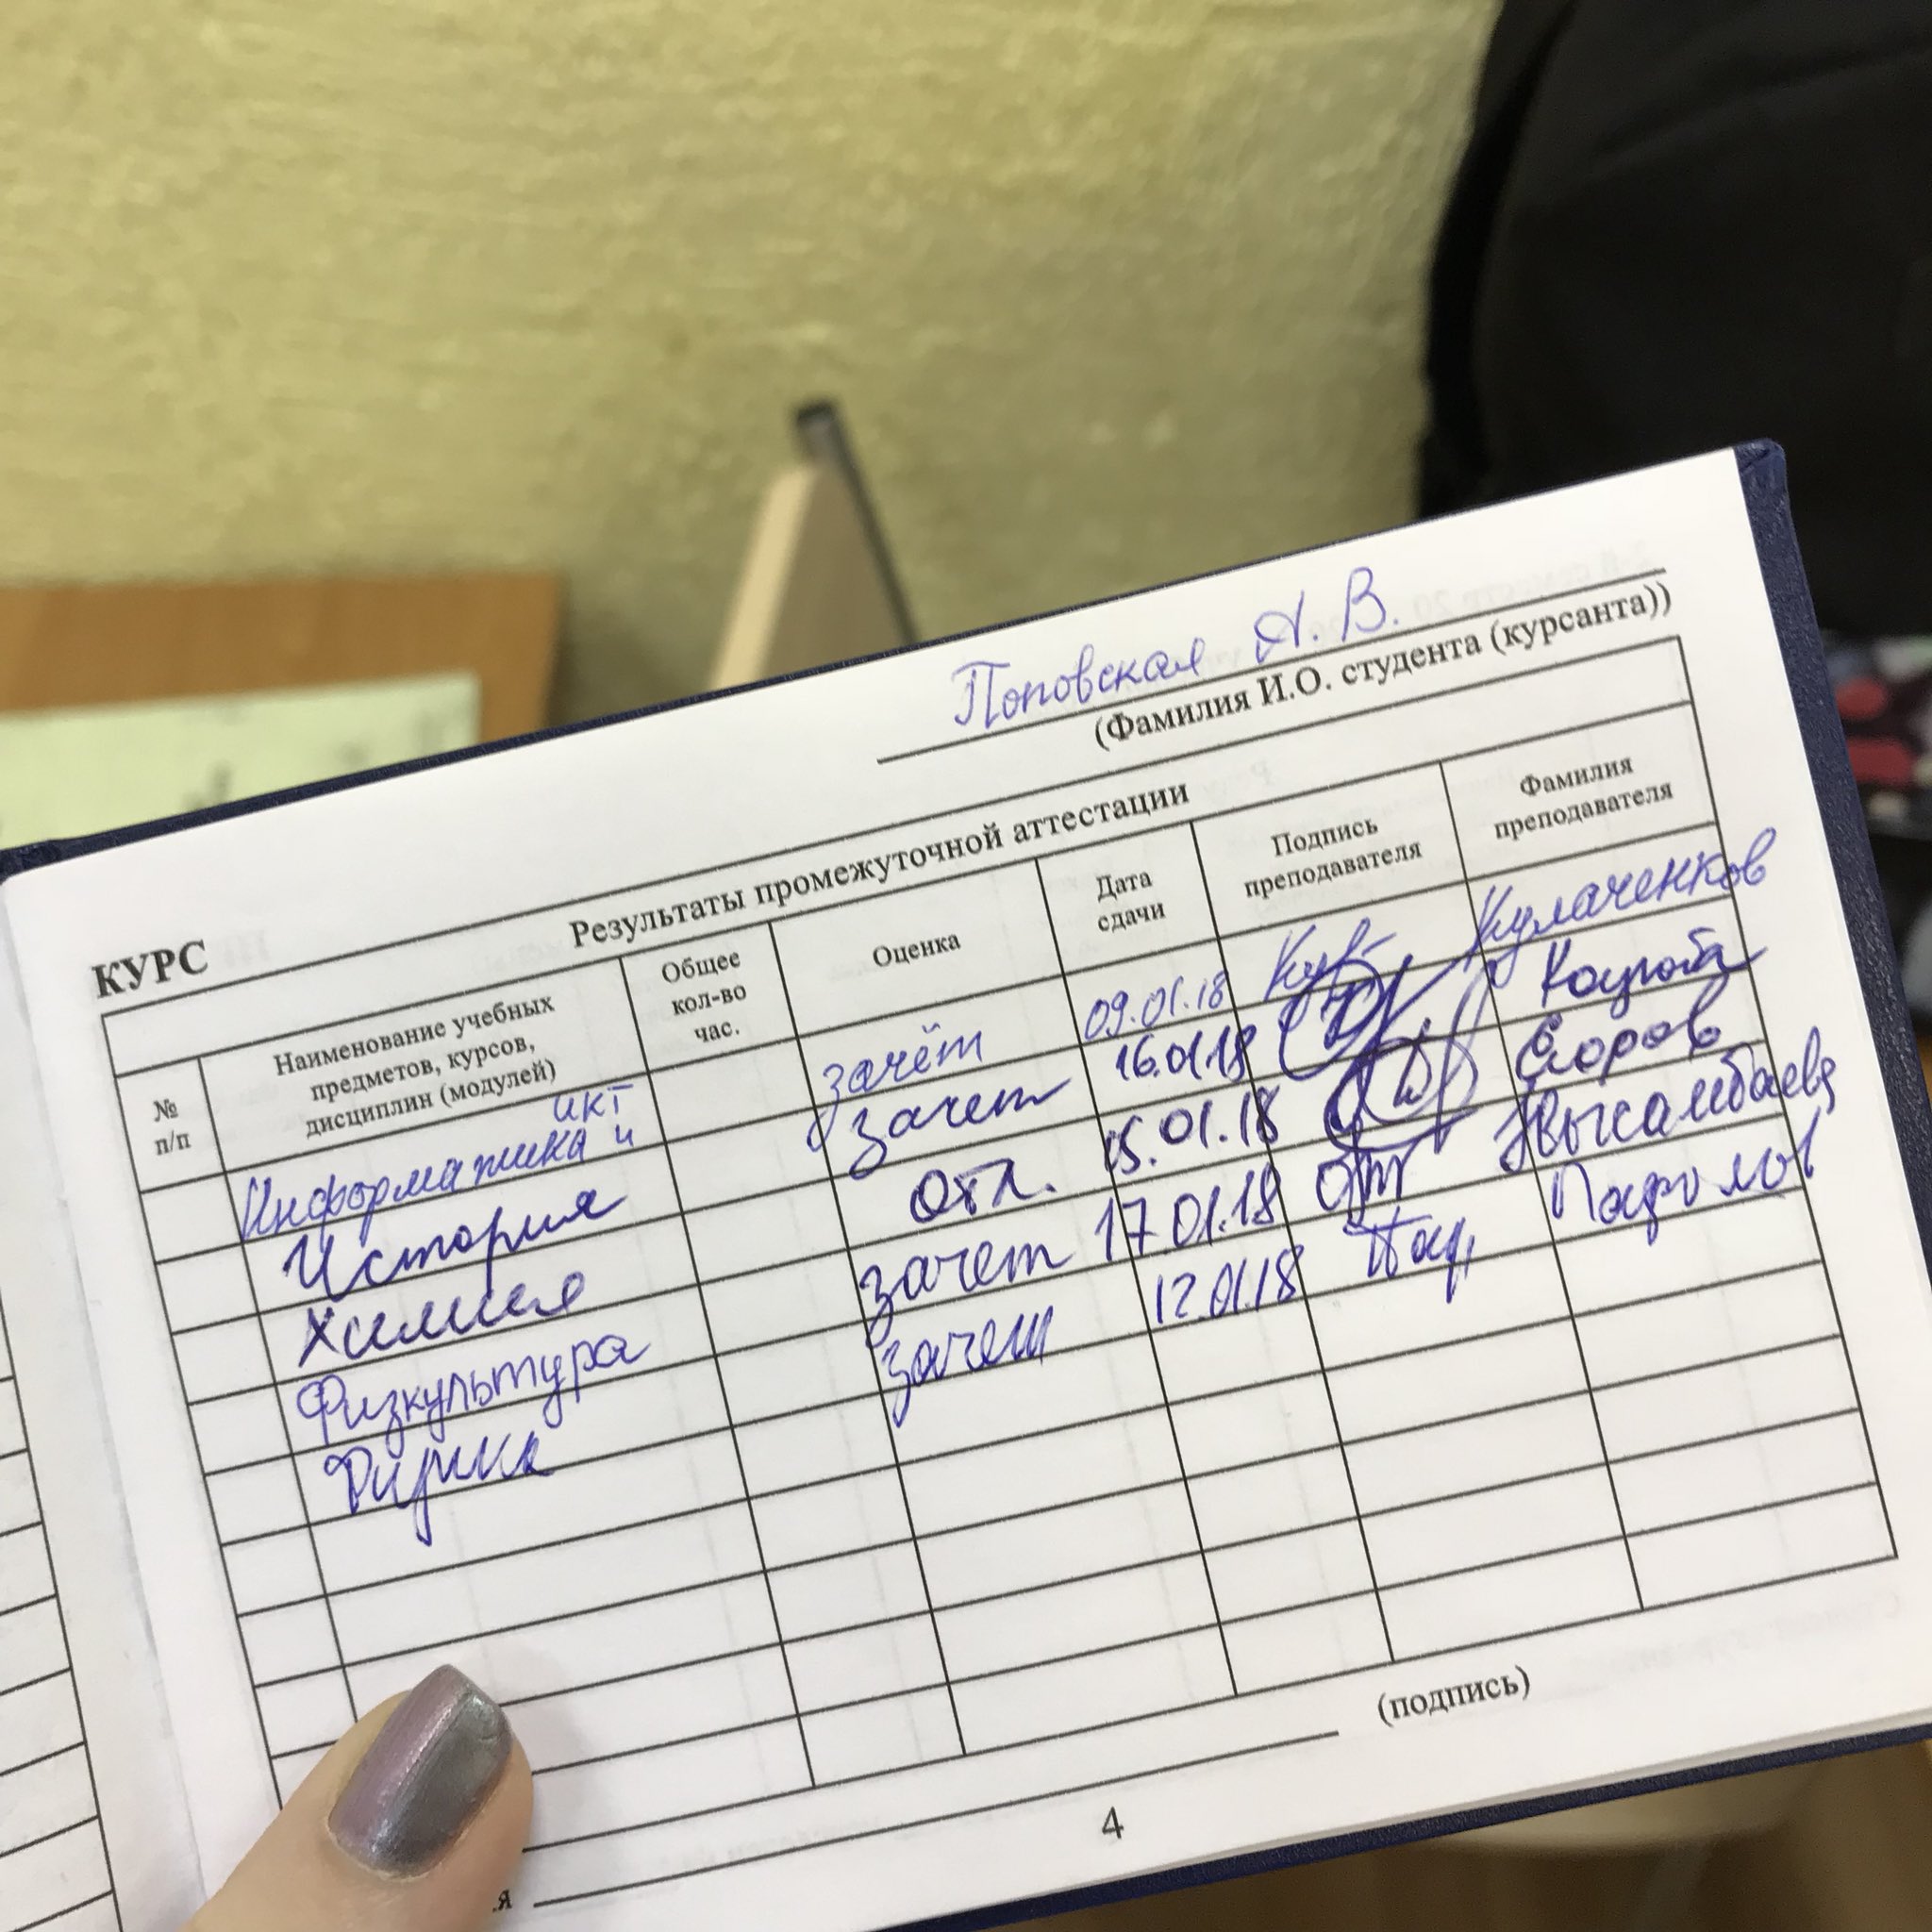 Поповская А. В.
(Фамилия И.О. студента (курсанта))
КУРС
Результаты промежуточной аттестации
№ п/п
Наименование учебных предметов, курсов, дисциплин (модулей)
Общее кол-во час.
Оценка
Дата сдачи
Подпись преподавателя
Фамилия преподавателя
Информатика и ИКТ зачёт 09.01.18 Кулаченков
История зачет 16.01.18
Химия отл. 15.01.18 Егоров
Физкультура зачет 17.01.18
Физика зачет 12.01.18
(подпись)
4